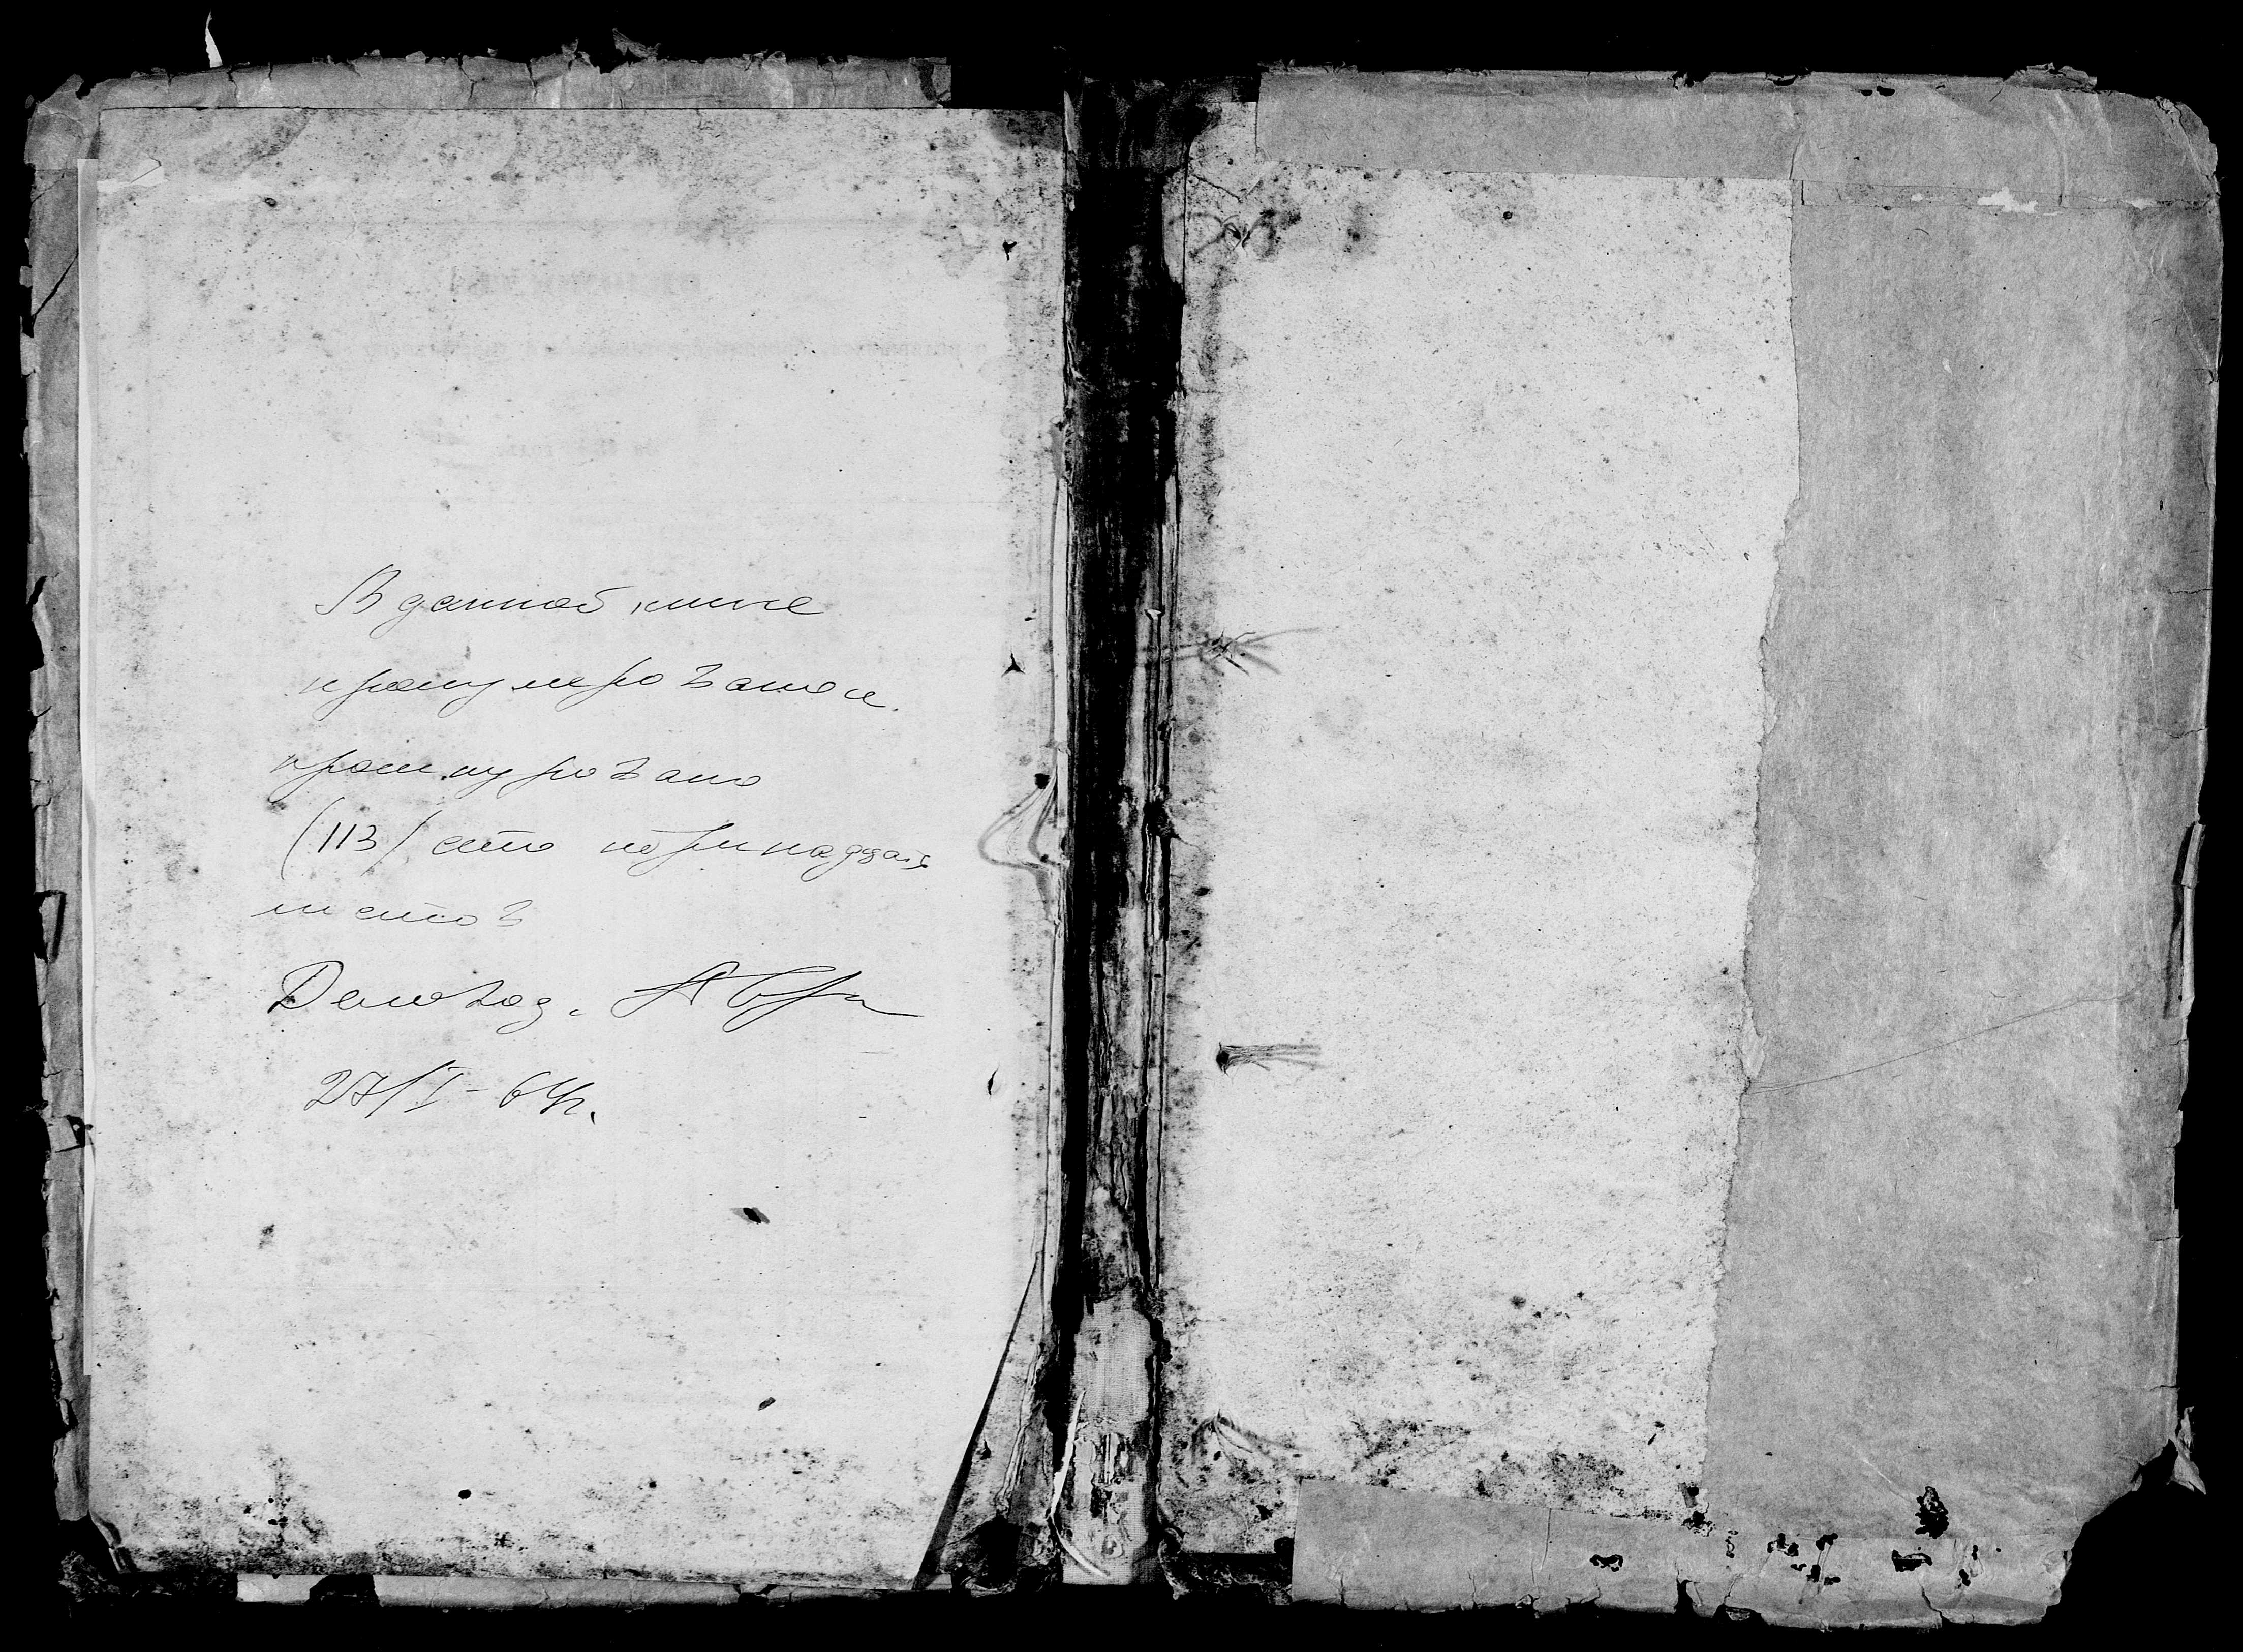 В данной книге
пронумеровано и
прошнуровано
(113/ сто тринадцать
листов
Деловод.
27/I-64г.